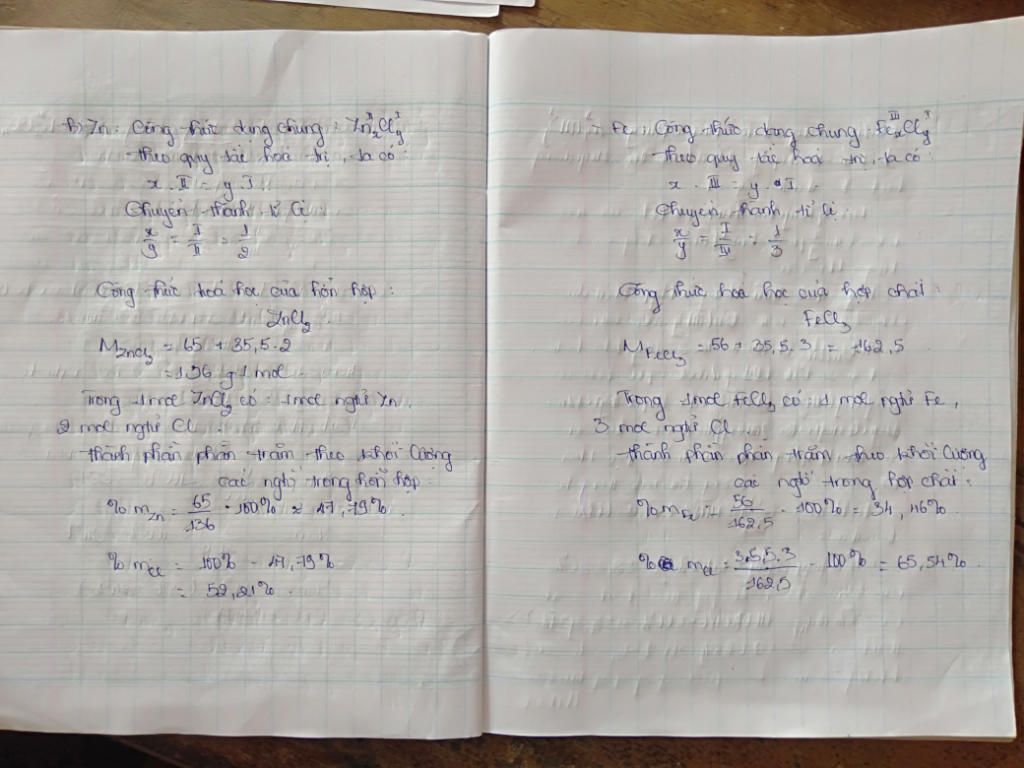 b) Zn: Công thức dạng chung: Zn^II_x Cl^I_y
theo quy tắc hoá trị, ta có:
x . II = y . I
Chuyển thành tỉ lệ:
x/y = I/II = 1/2
Công thức hoá học của hỗn hợp:
ZnCl2
M ZnCl2 = 65 + 35,5.2
= 136 g/mol
Trong 1 mol ZnCl2 có: 1 mol ngtử Zn,
2 mol ngtử Cl.
thành phần phần trăm theo khối lượng
các ngtố trong hỗn hợp:
% m Zn = 65/136 . 100% ≈ 47,79%.
% m Cl = 100% - 47,79%
= 52,21%.
Fe: Công thức dạng chung: Fe^III_x Cl^I_y
theo quy tắc hoá trị, ta có:
x . III = y . I.
Chuyển thành tỉ lệ:
x/y = I/III = 1/3
Công thức hoá học của hợp chất:
FeCl3
M FeCl3 = 56 + 35,5.3 = 162,5
Trong 1 mol FeCl3 có: 1 mol ngtử Fe,
3 mol ngtử Cl.
thành phần phần trăm theo khối lượng
các ngtố trong hợp chất:
% m Fe = 56/162,5 . 100% = 34,46%
% m Cl = 3,5,5.3/162,5 . 100% = 65,54%.